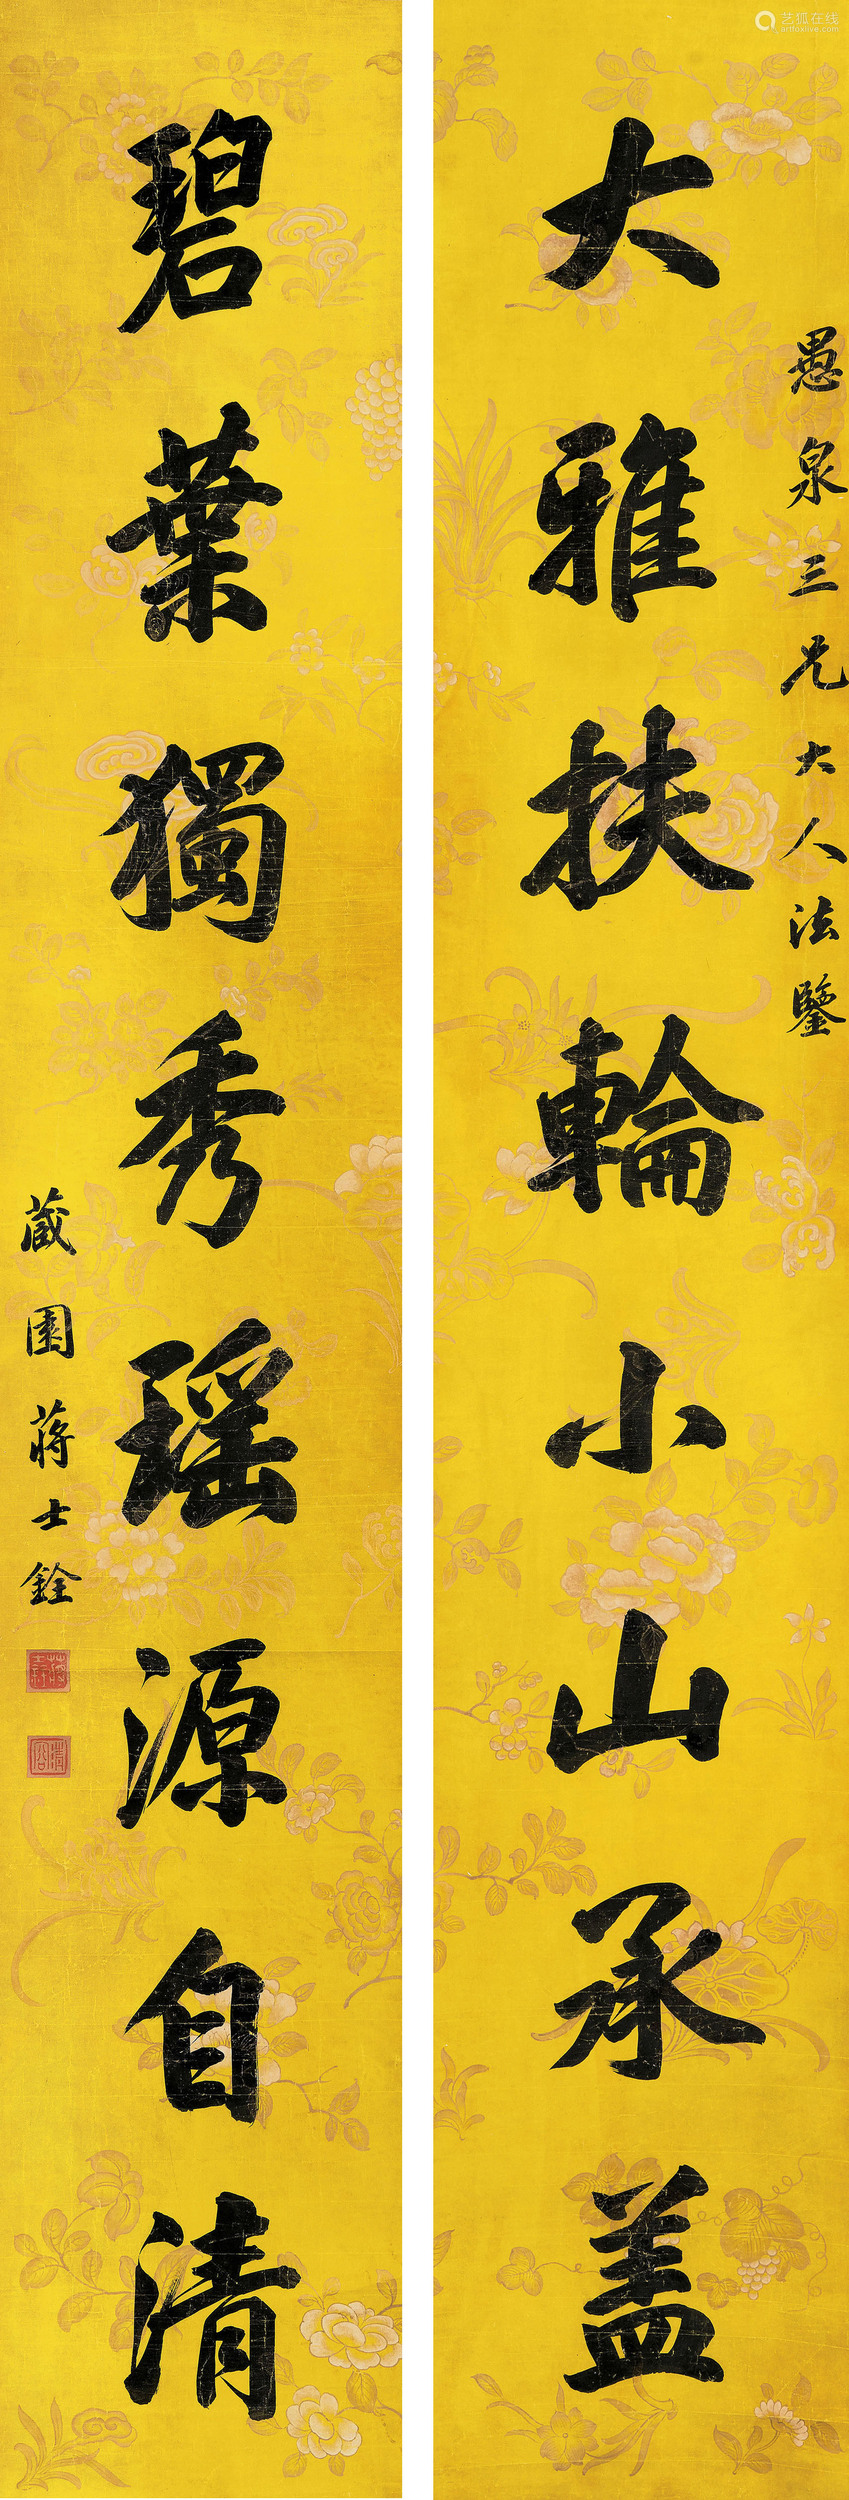 愚泉三兄大人法鑒
大雅扶輪小山承盖
碧葉獨秀瑶源自清
藏園蔣士銓
艺狐在线
artfoxlive.com